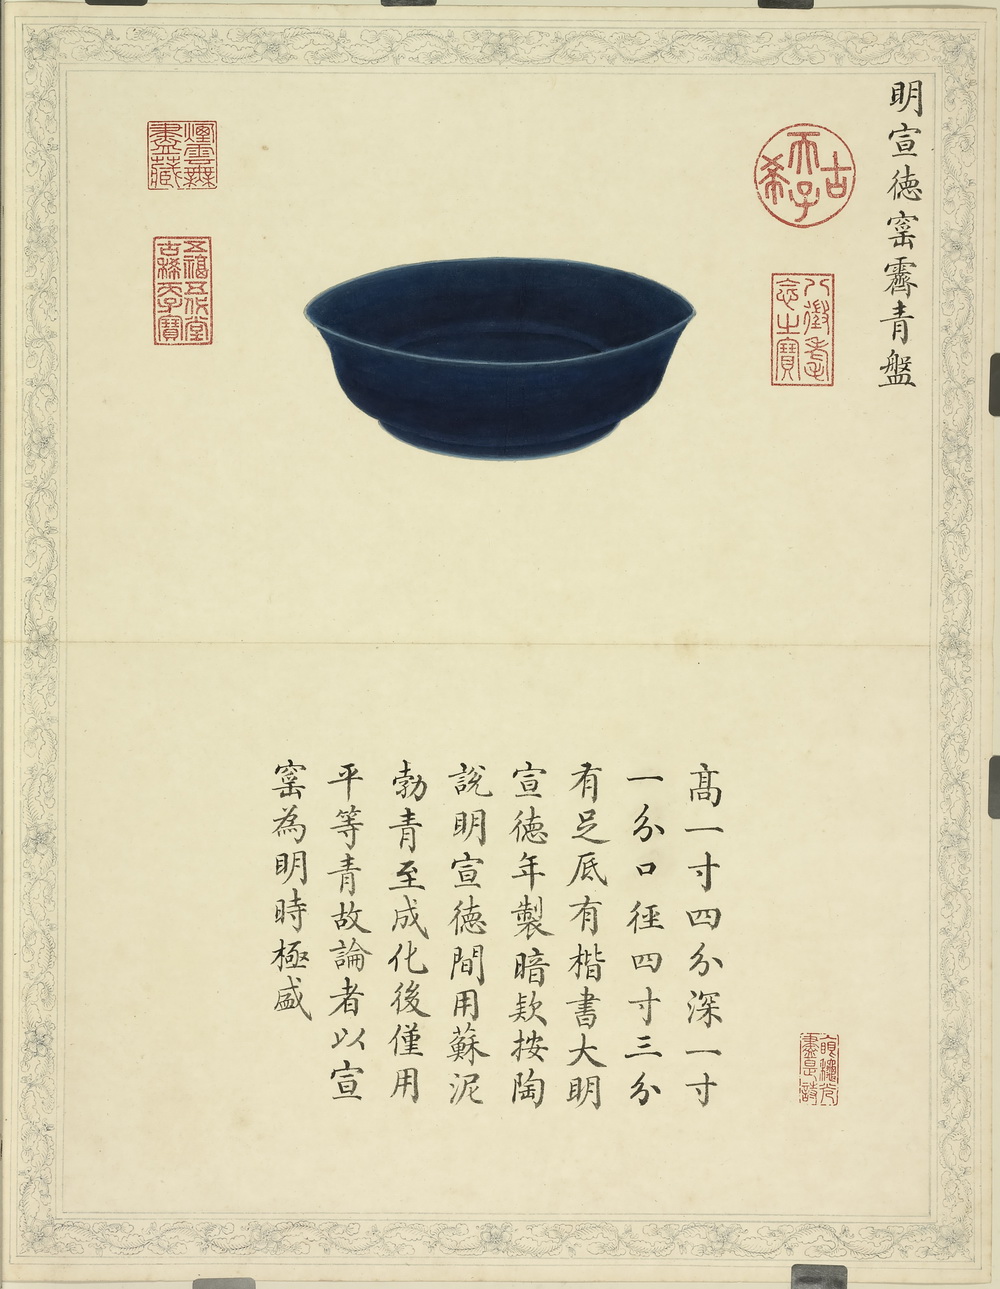 明宣德窰霽青盤
古希天子
八徵耄念之寶
煙雲無盡藏
五福五代堂古稀天子寶
高一寸四分深一寸
一分口徑四寸三分
有足底有楷書大明
宣德年製暗款按陶
說明宣德間用蘇泥
勃青至成化後僅用
平等青故論者以宣
窰為明時極盛
盡是詩